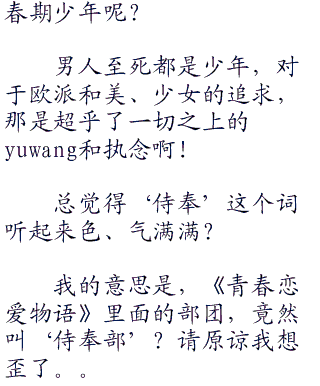 春期少年呢？
男人至死都是少年，对
于欧派和美、少女的追求，
那是超乎了一切之上的
yuwang和执念啊！
总觉得‘侍奉’这个词
听起来色、气满满？
我的意思是，《青春恋
爱物语》里面的部团，竟然
叫‘侍奉部’？请原谅我想
歪了。。